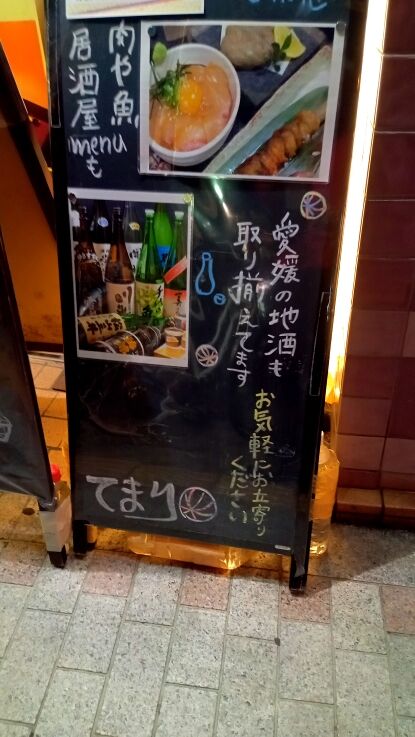 肉や魚
居酒屋
menuも
愛媛の地酒も
取り揃えてます
お気軽にお立寄り
ください
てまり